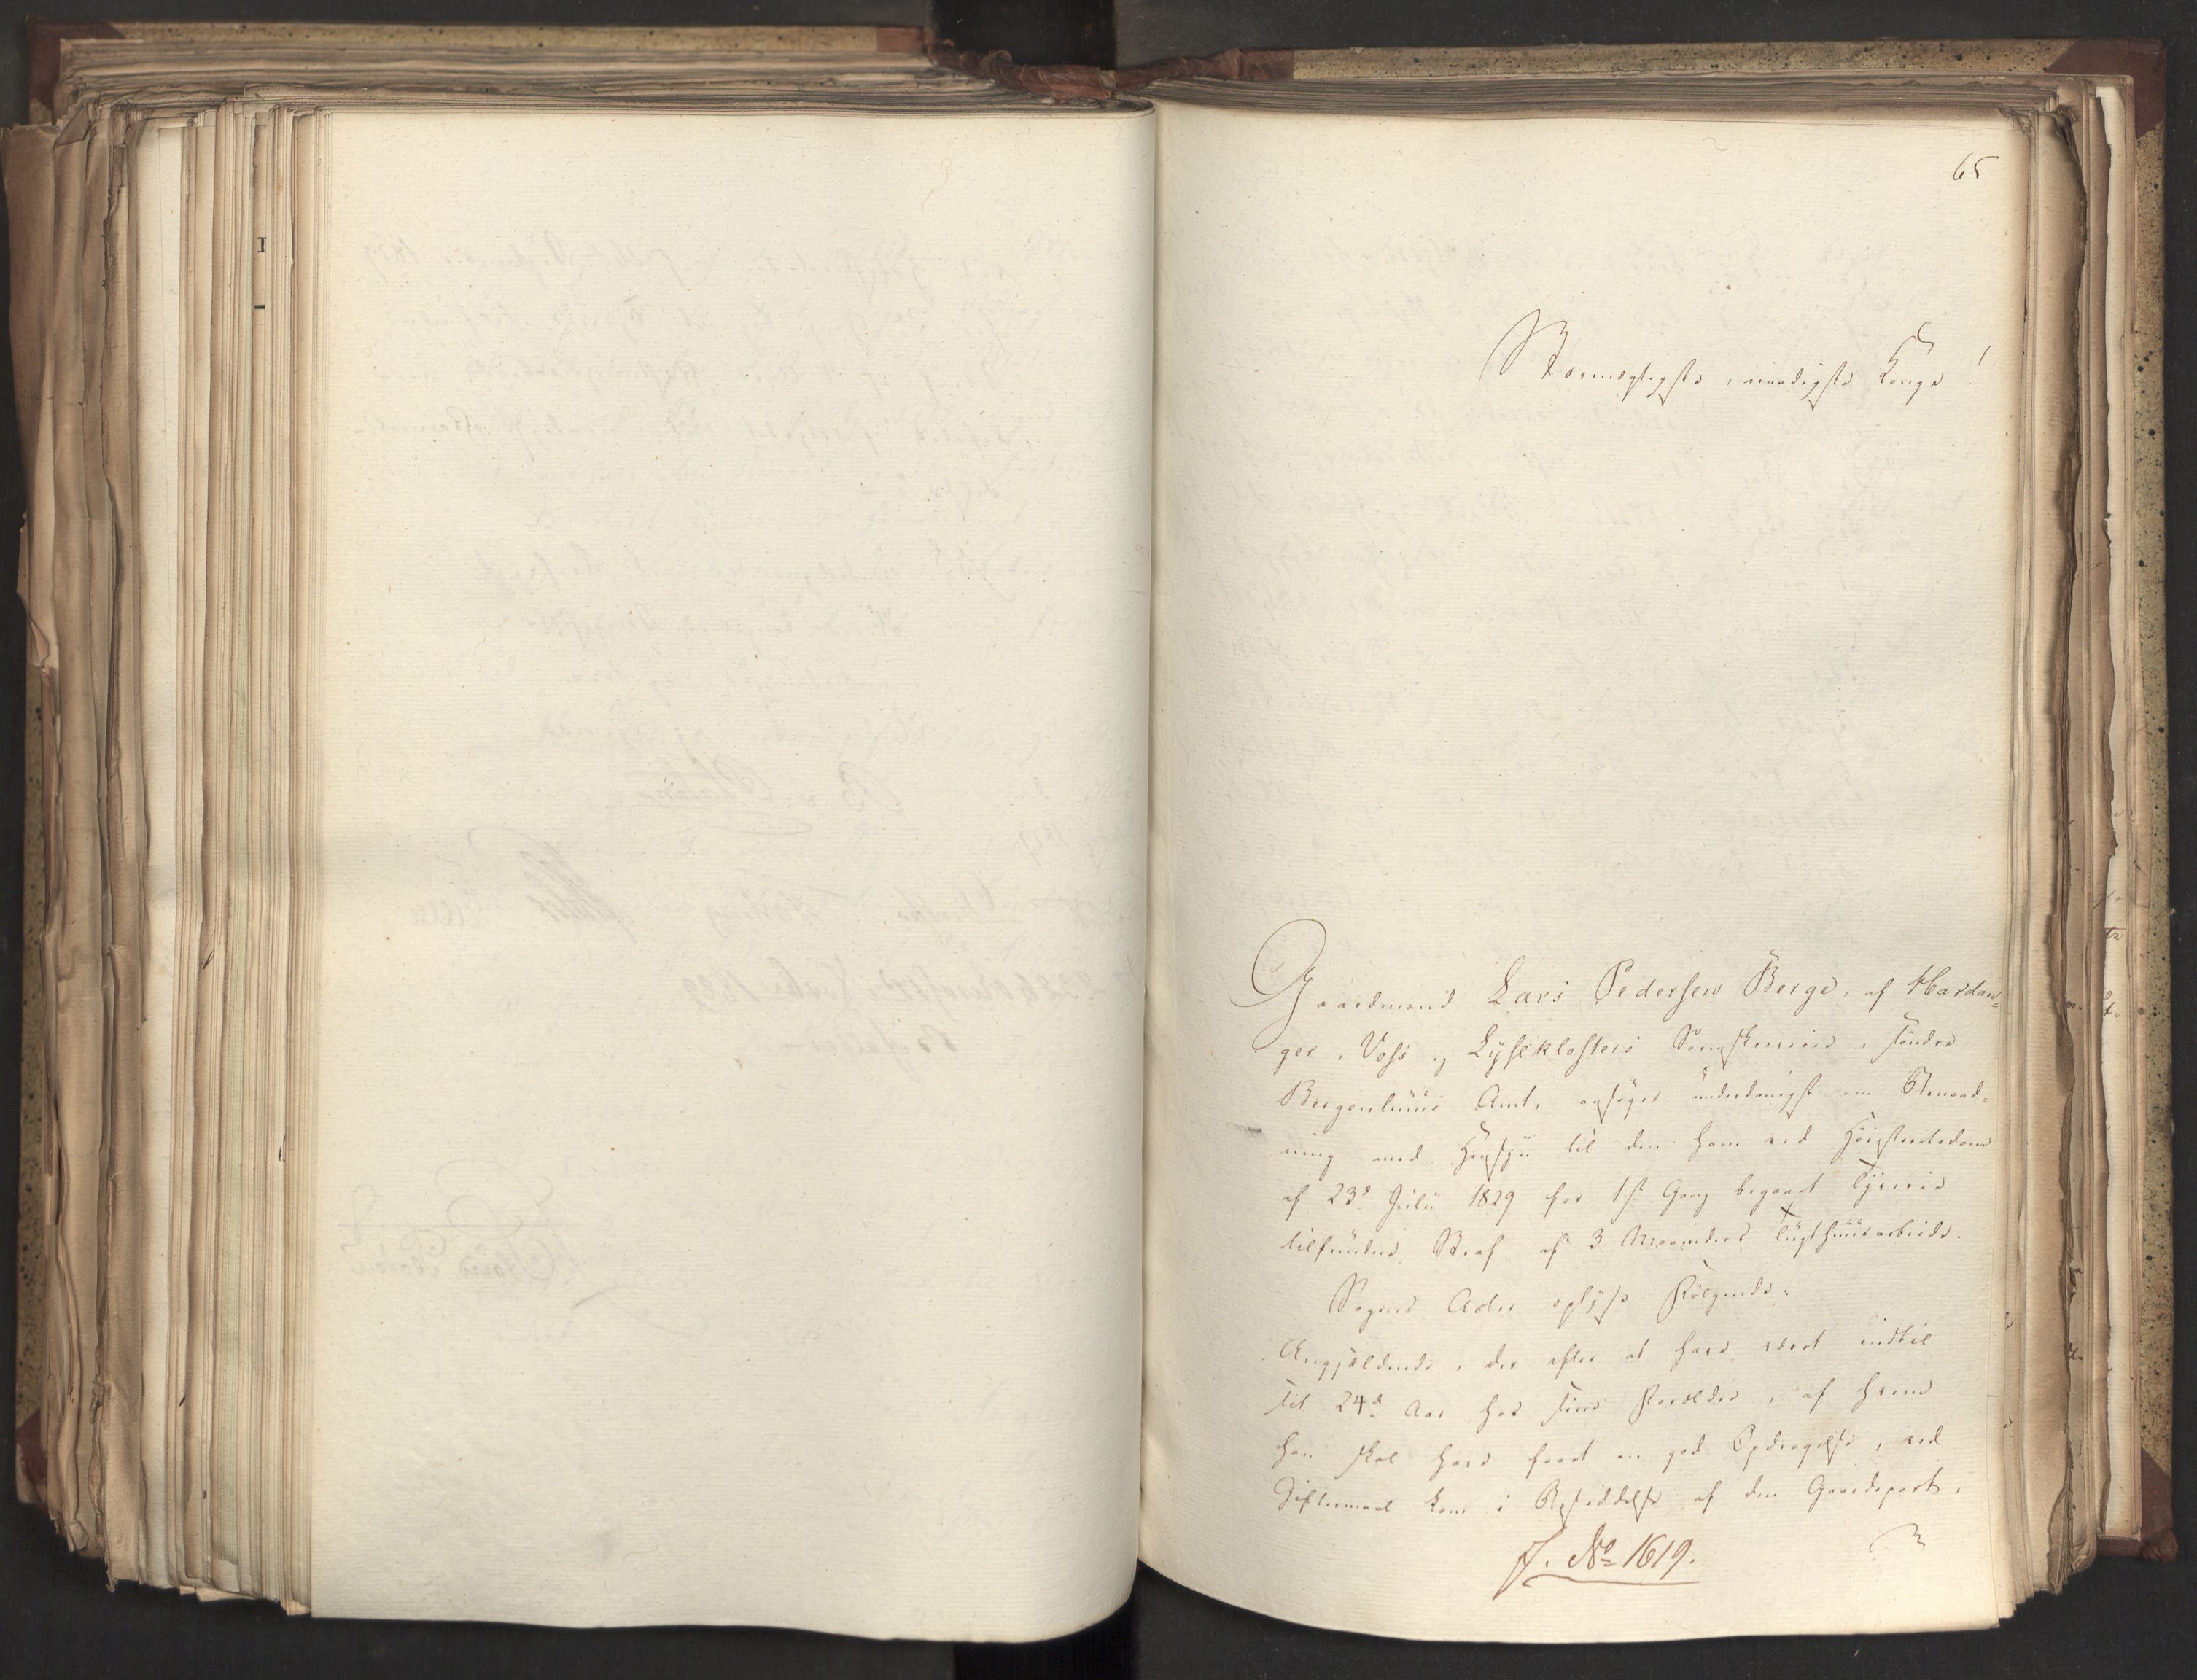 65
Stormægtigste, naadigste Konge!
Gaardmand Lars Pedersen Berge, af Hardan-
ger, Voss og Lyseklosters Sorenskriverie, i søndre
Bergenhuus Amt, ansøger underdanigst om Benaad-
ning med Hensyn til den ham ved Høiesteretsdom
af 23d Julii 1829 for 1ste Gang begaaet Tyverie
tilfundne Straf af 3 Maaneders Tugthuusarbeide.
Sagens Acter oplyse Følgende:
Angjældende, der efter at have været indtil
sit 24d Aar hos sine Forældre, af hvem
han skal have faaet en god Opdragelse, ved
Giftermaal kom i Besiddelse af den Gaardepart,
J. No 1619.